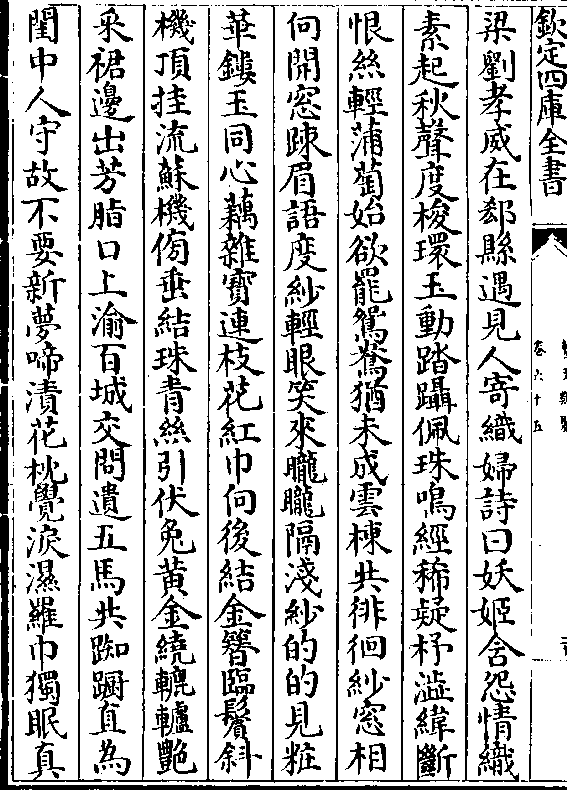 欽定四庫全書
卷六十五
梁劉孝威在郄縣遇見人寄織婦詩曰妖姬含怨情織
素起秋聲度梭環玉動踏躡佩珠鳴經稀疑杼澁緯斷
恨絲輕蒲萄始欲罷鴛鴦猶未成雲棟共徘徊紗窓相
向開窓疎眉語度紗輕眼笑來朧朧隔淺紗的的見粧
華鏤玉同心藕雜寶連枝花紅巾向後結金簪臨鬢斜
機頂挂流蘇機傍垂結珠青絲引伏兔黄金繞轆轤艷
采裙邊出芳脂口上渝百城交問遺五馬共踟蹰直為
閨中人守故不要新夢啼漬花枕覺淚濕羅巾獨眠真